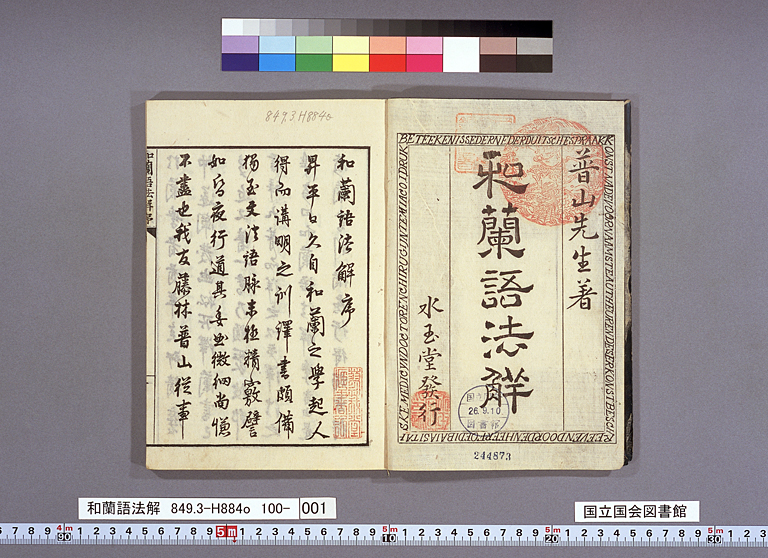 849.3 H884o
普山先生著
和蘭語法解
水玉堂發行
26.9.10
244873
和蘭語法解序
昇平日久自和蘭之學起人
得而講明之訓譯書頗備
獨至文法語脉未極精竅譬
如昏夜行道其委曲微細尚憾
不盡也我友藤林普山從事
和蘭語法解序
和蘭語法解 849.3-H884o 100- 001
国立国会図書館